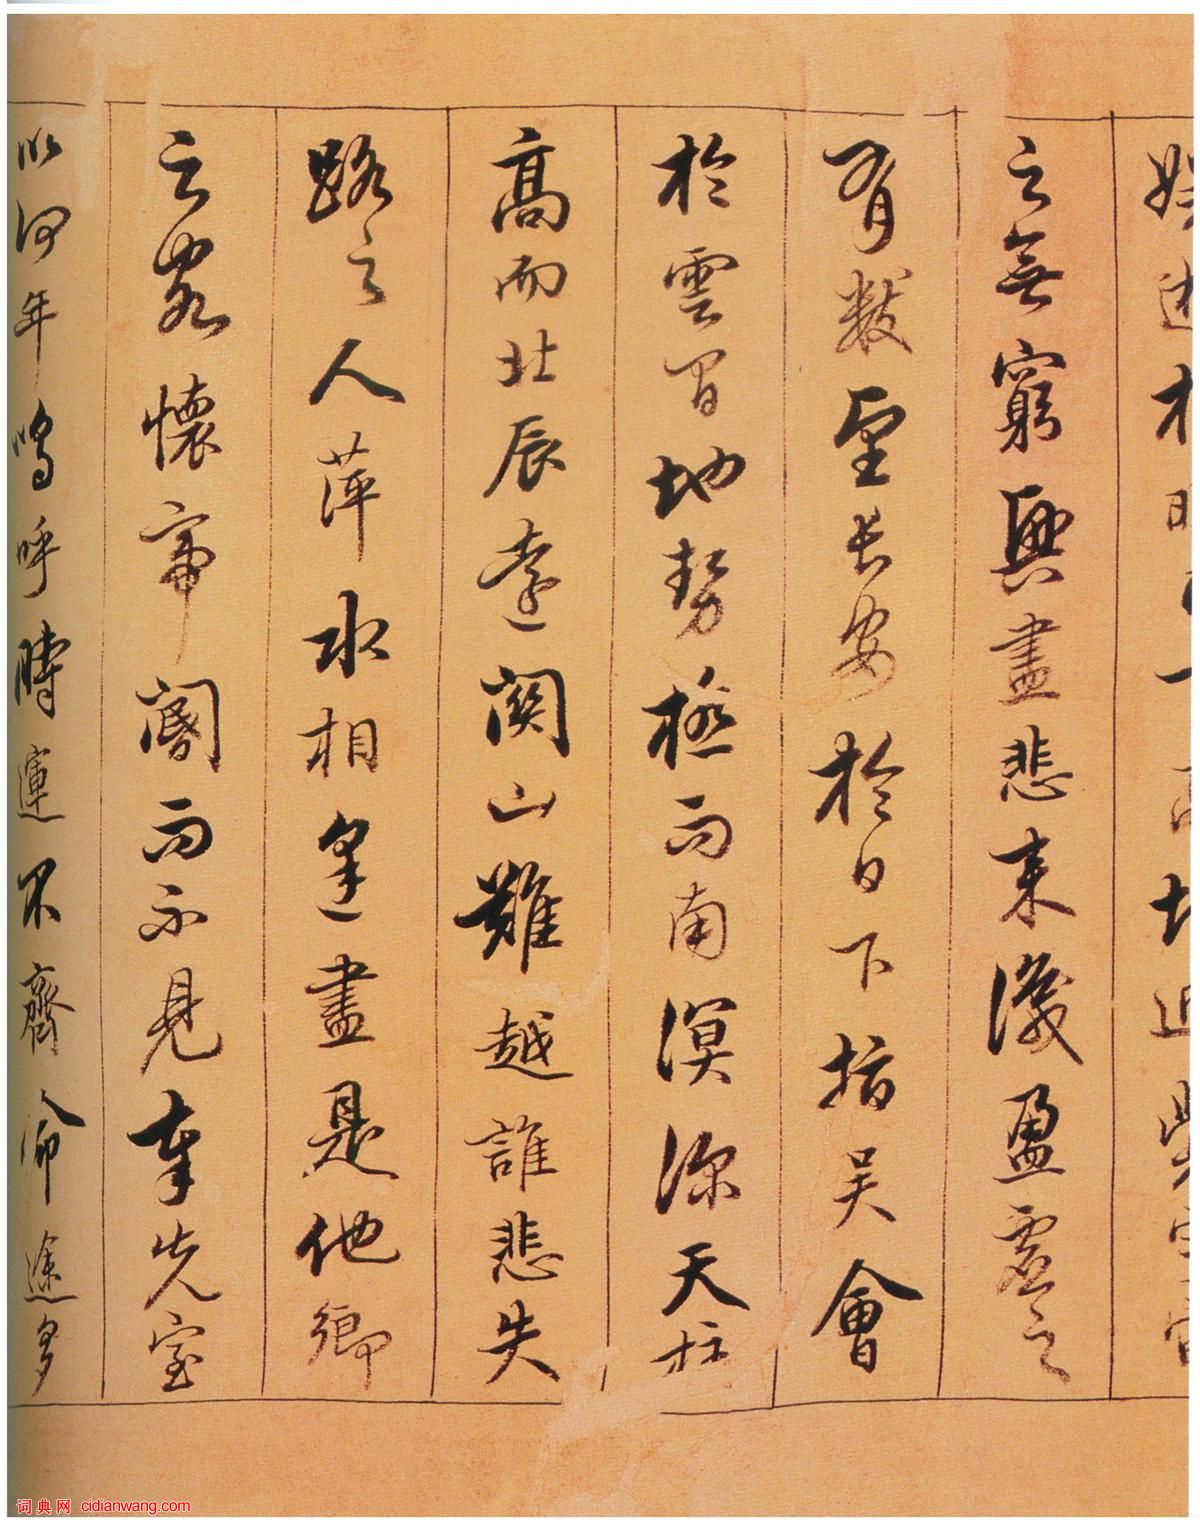 之無窮興盡悲來識盈虛之
有數望長安於日下指吳會
於雲間地勢極而南溟深天柱
高而北辰遠關山難越誰悲失
路之人萍水相逢盡是他鄉
之客懷帝閽而不見奉先室
以何年嗚呼時運不齊命途多
词典网 cidianwang.com